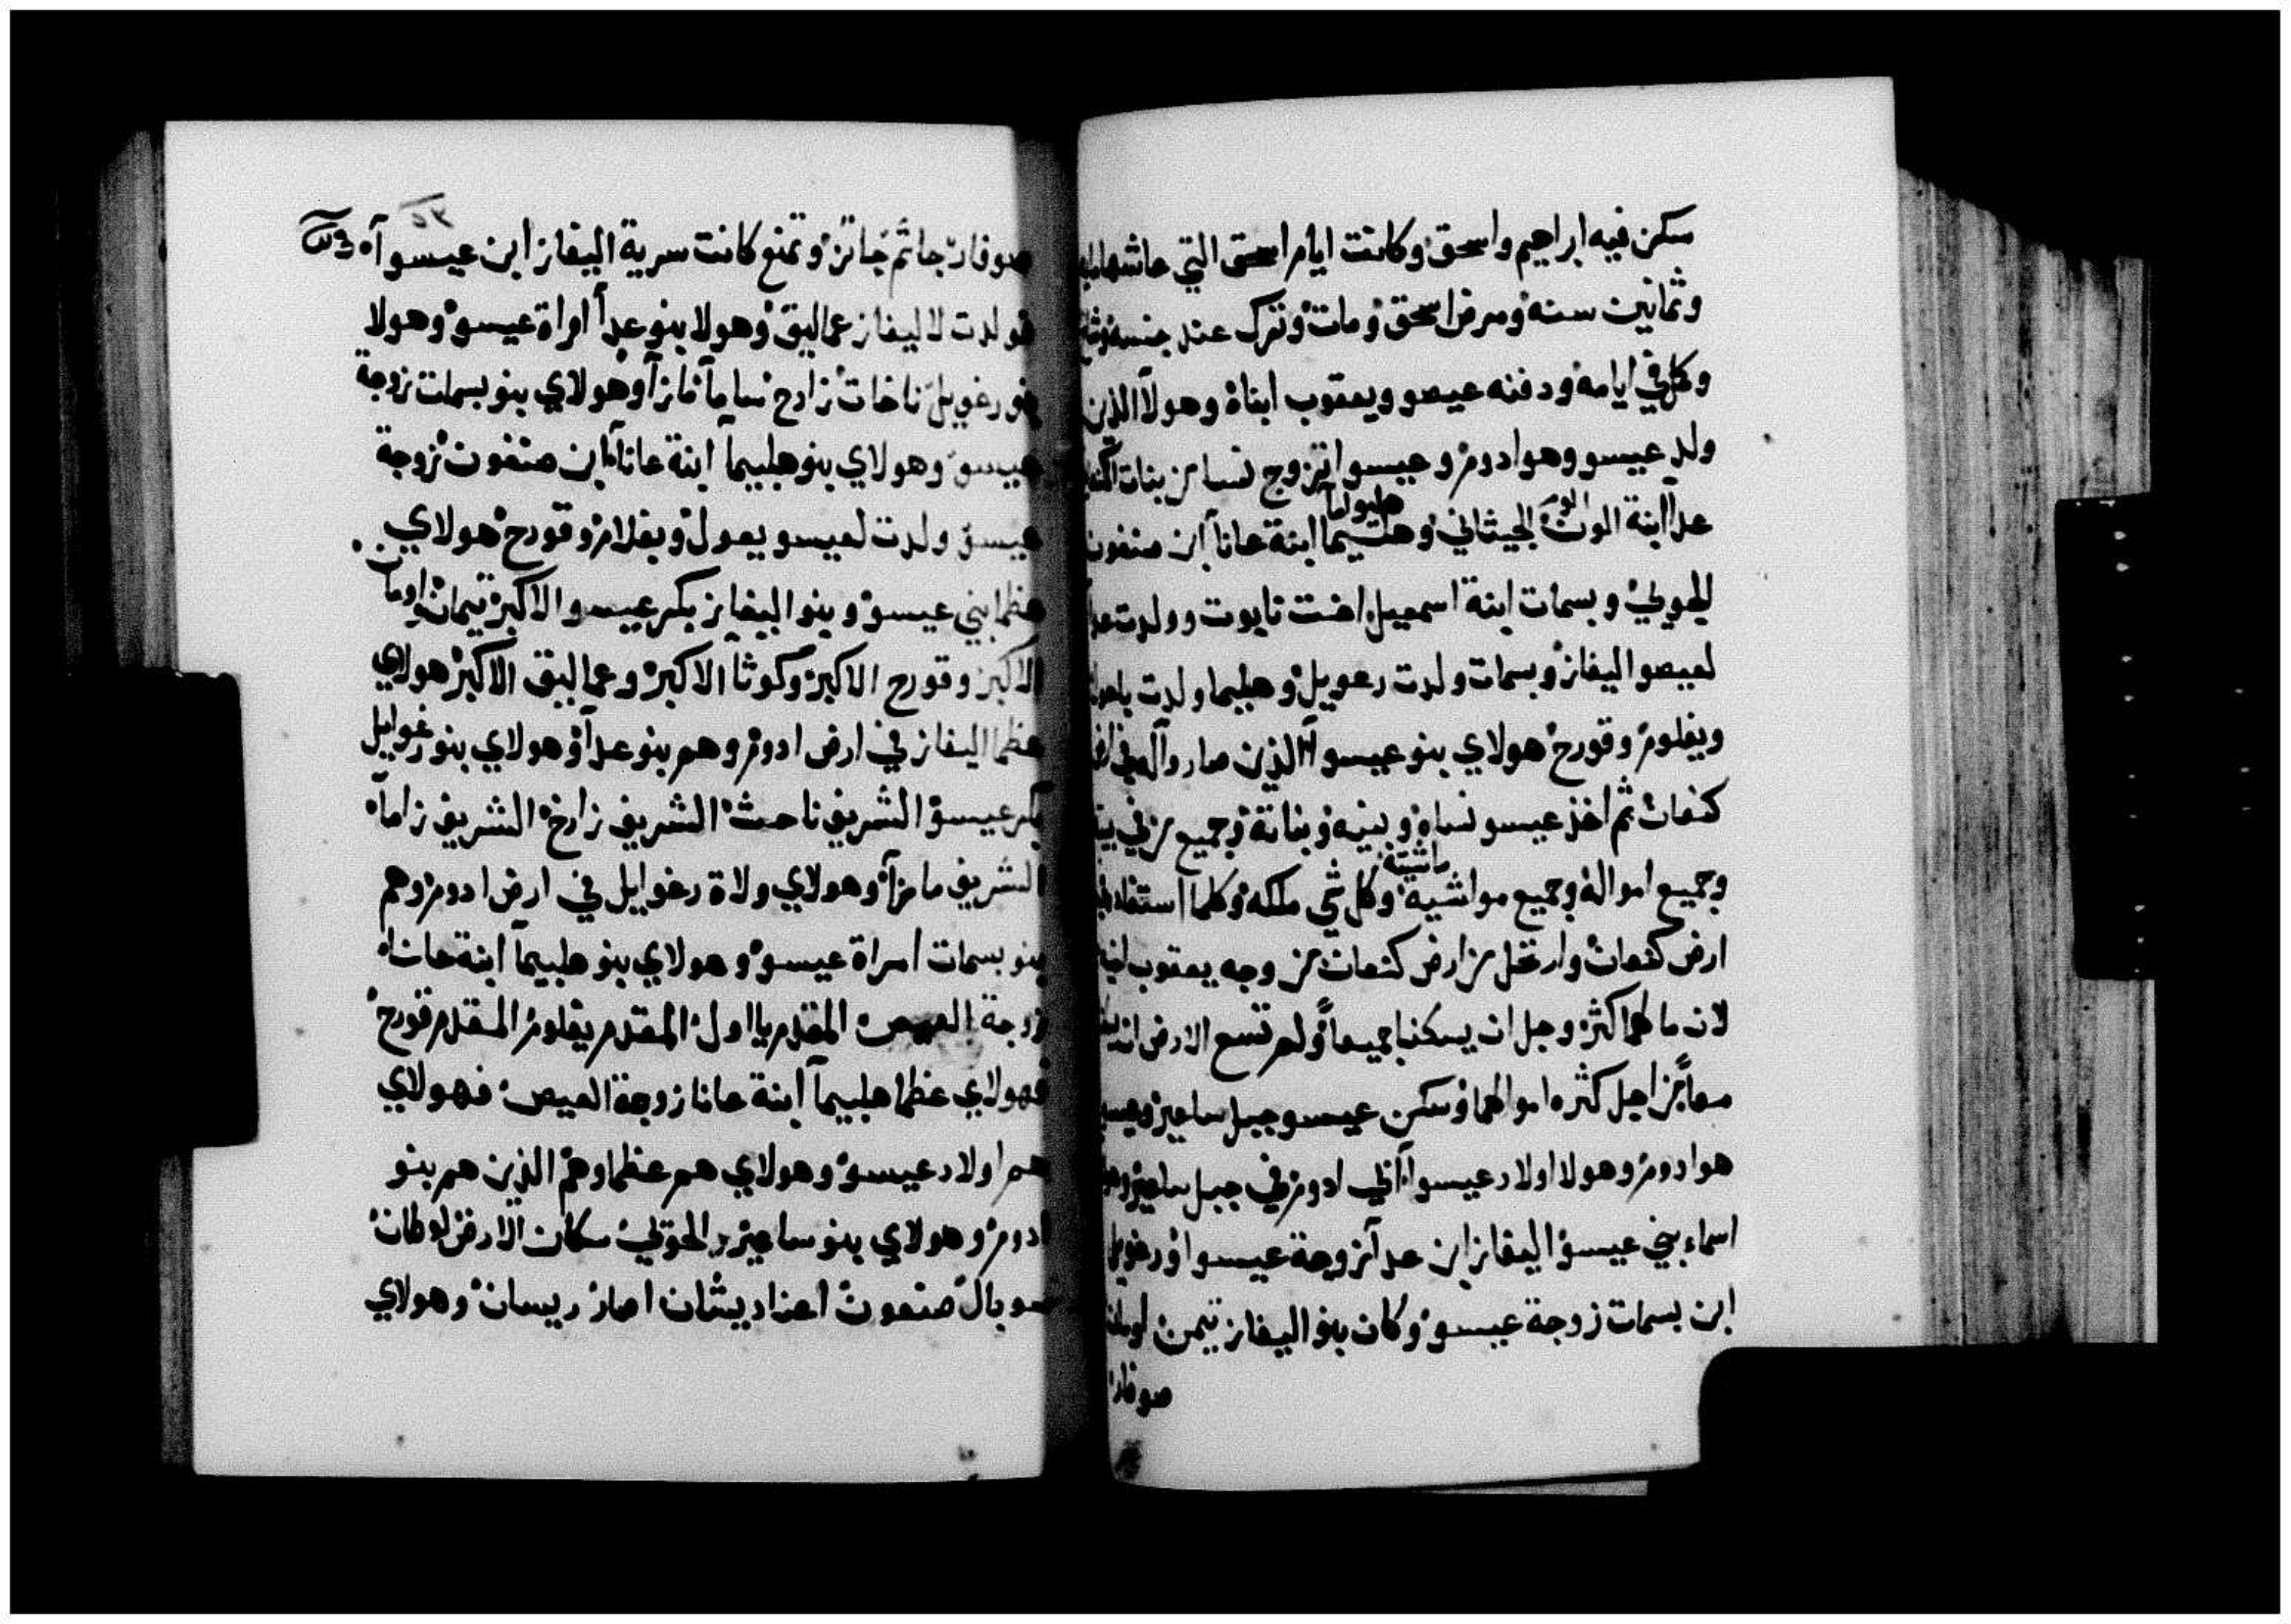 سكن فيه ابراهيم واسحق وكانت ايام اسحق التي عاشها مايه
وثمانين سنه ومرض اسحق ومات وترك عند جنسه وشاخ
وكمل في ايامه ودفنه عيصو ويعقوب ابناه وهولا الذين
ولد عيسو وهو ادوم وعيسوا تزوج نسا من بنات
عدا ابنة الوث الحيثاني وهليبما ابنة عانا ابن صنغون
الحوي وبسمات ابنة اسمعيل اخت نايوت وولدت عدا
لعيصو اليفاز وبسمات ولدت رعويل وهليبما ولدت
ويغلوم وقورح هولاي بنو عيسوا الذين صاروا له في ارض
كنعان ثم اخذ عيسو نساه وبنيه وبناته وجميع من في بيته
ماشيته
وجميع امواله وجميع مواشيه وكل شي ملكه وكلما استفاد في
ارض كنعان وارتحل من ارض كنعان من وجه يعقوب اخيه
لان مالهما كثر وجل ان يسكنا جميعا ولم تسع الارض ان
معا من اجل كثره اموالهما وسكن عيسو جبل ساعير وعيسو
هو ادوم وهولا اولاد عيسوا ابي ادوم في جبل ساعير وهذه
اسماء بني عيسو اليفاز ابن عدا زوجة عيسوا ورغويل
ابن بسمات زوجة عيسو وكان بنو اليفاز تيمن اومان
صوفار
٥٣
صوفار جاثم جاتز وتمنع كانت سرية اليفاز ابن عيسوا
فولدت لاليفاز عماليق وهولا بنو عدا امراة عيسو وهولا
بنو رغويل ناخات زارح ساما مازا وهولاي بنو بسمات زوجة
عيسو وهولاي بنو هليبما ابنة عانا ابن صنغون زوجة
عيسو ولدت لعيسو يعول ويغلام وقورح هولاي
عظما بني عيسو وبنو اليفاز بكر عيسو الاكبر تيمان اومان
الاكبر وقورح الاكبر وكوثا الاكبر وعماليق الاكبر هولاي
عظما اليفاز في ارض ادوم وهم بنو عدا وهولاي بنو رغوايل
بكر عيسو الشريف ناحث الشريف زارخ الشريف زاما
الشريف مازا وهولاي ولاة رغوايل في ارض ادوم وهم
بنو بسمات امراة عيسو وهولاي بنو هليبما ابنة عانا
زوجة العيص المقدم يا اول المقدم يغلوم المقدم قورح
فهولاي عظما هليبما ابنة عانا زوجة العيص فهولاي
هم اولاد عيسو وهولاي هم عظماوهم الذين هم بنو
ادوم وهولاي بنو ساعير الحوتي سكان الارض لوطان
سوبال صنعون اعنا ديشان اصار ريسان وهولاي